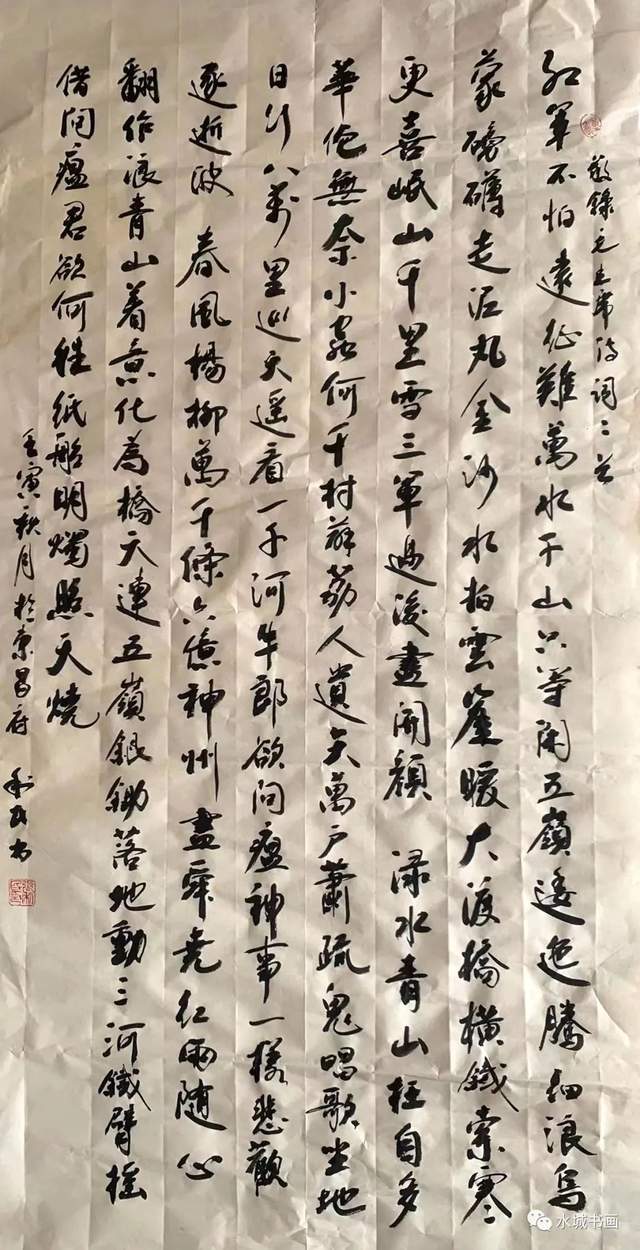 敬錄毛主席诗词三首
红军不怕遠征難萬水千山只等闲五嶺逶迤騰细浪烏
蒙磅礴走泥丸金沙水拍雲崖暖大渡橋横鐵索寒
更喜岷山千里雪三軍過後盡開顏 渌水青山枉自多
華佗無奈小蟲何千村薜荔人遺矢萬户蕭疏鬼唱歌坐地
日行八萬里巡天遥看一千河牛郎欲问瘟神事一樣悲歡
逐逝波 春風楊柳萬千條六億神州盡舜尧红雨随心
翻作浪青山着意化為橋天連五嶺銀鋤落地動三河鐵臂摇
借问瘟君欲何往纸船明燭照天燒
壬寅秋月於東昌府
水城书画